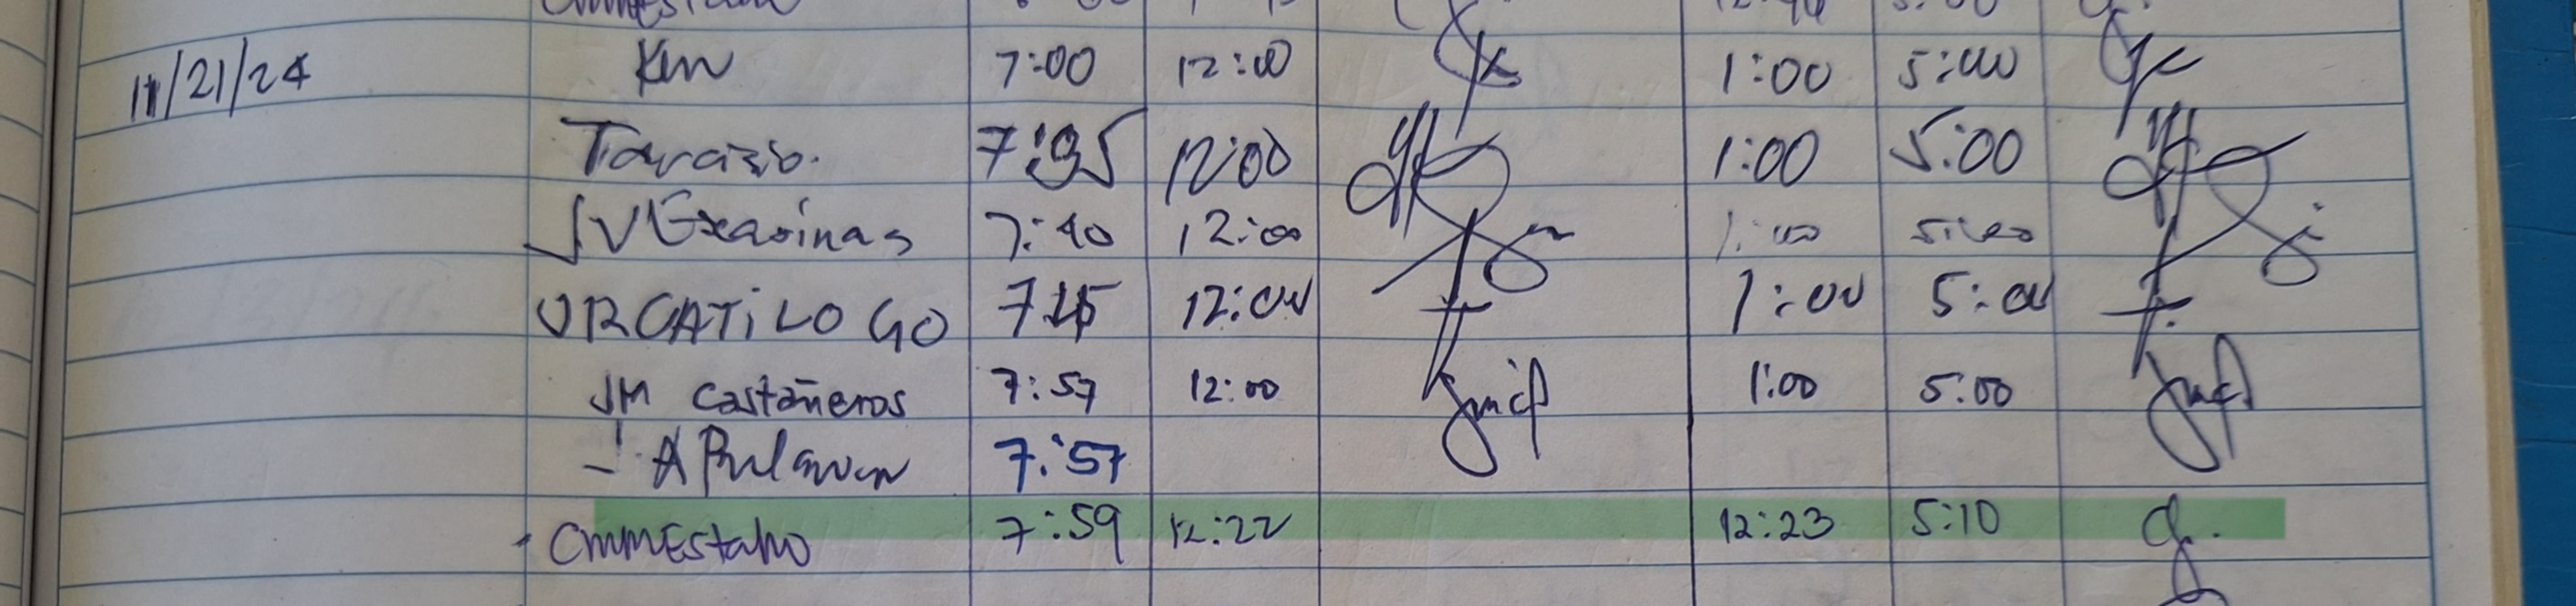 11/21/24 Ken 7:00 12:00 1:00 5:00
7:35 12:00 1:00 5:00
JV 7:40 12:00 1:00 5:00
VR CATiLO GO 745 12:00 1:00 5:00
JM Castañeros 7:57 12:00 1:00 5:00
7:57
CMMEstaño 7:59 12:22 12:23 5:10